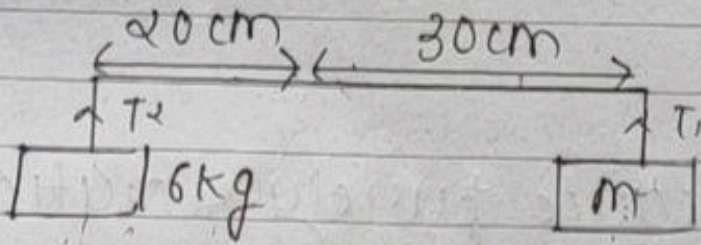 20cm 30cm
T2 T1
6kg m